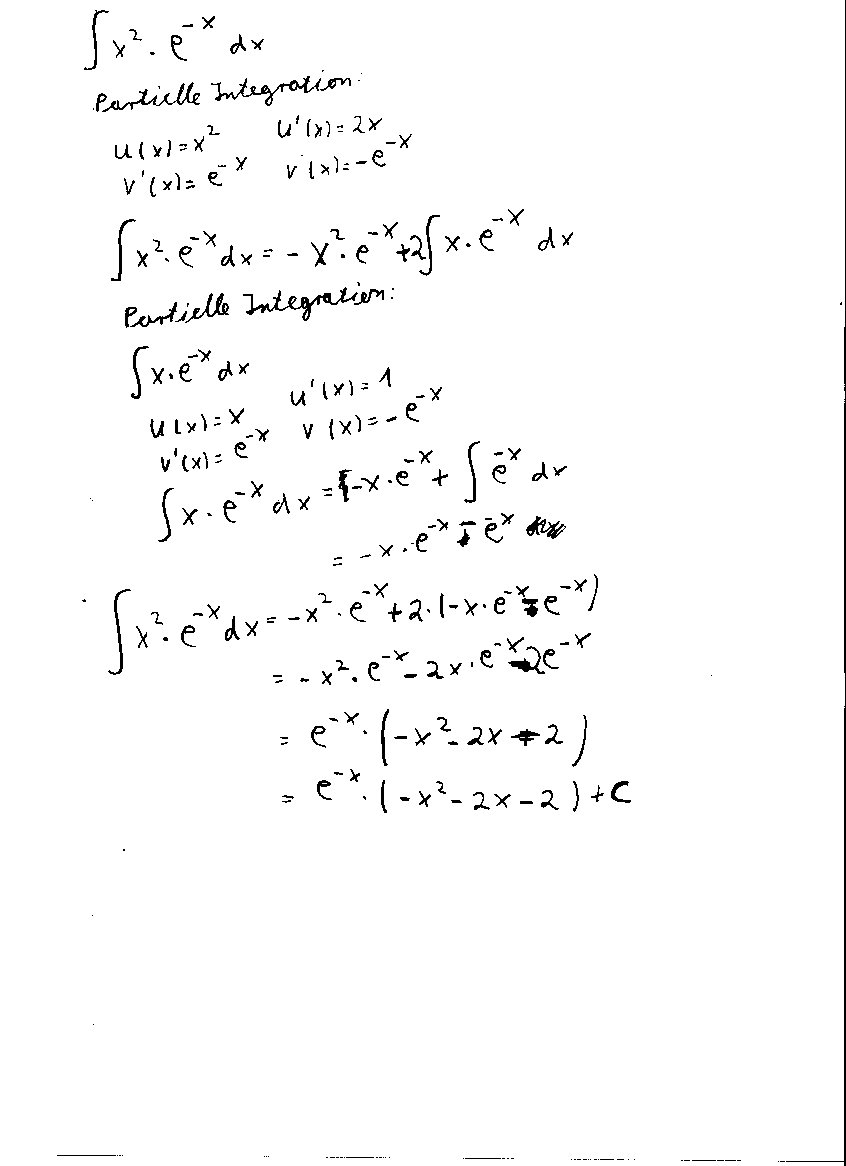 ∫ x² · e^-x dx
Partielle Integration:
u(x) = x² u'(x) = 2x
v'(x) = e^-x v(x) = -e^-x
∫ x² · e^-x dx = - x² · e^-x + 2∫ x · e^-x dx
Partielle Integration:
∫ x · e^-x dx
u(x) = x u'(x) = 1
v'(x) = e^-x v(x) = -e^-x
∫ x · e^-x dx = -x · e^-x + ∫ e^-x dx
= -x · e^-x - e^-x
∫ x² · e^-x dx = -x² · e^-x + 2 · (-x · e^-x - e^-x)
= -x² · e^-x - 2x · e^-x - 2e^-x
= e^-x · (-x² - 2x - 2)
= e^-x · (-x² - 2x - 2) + C